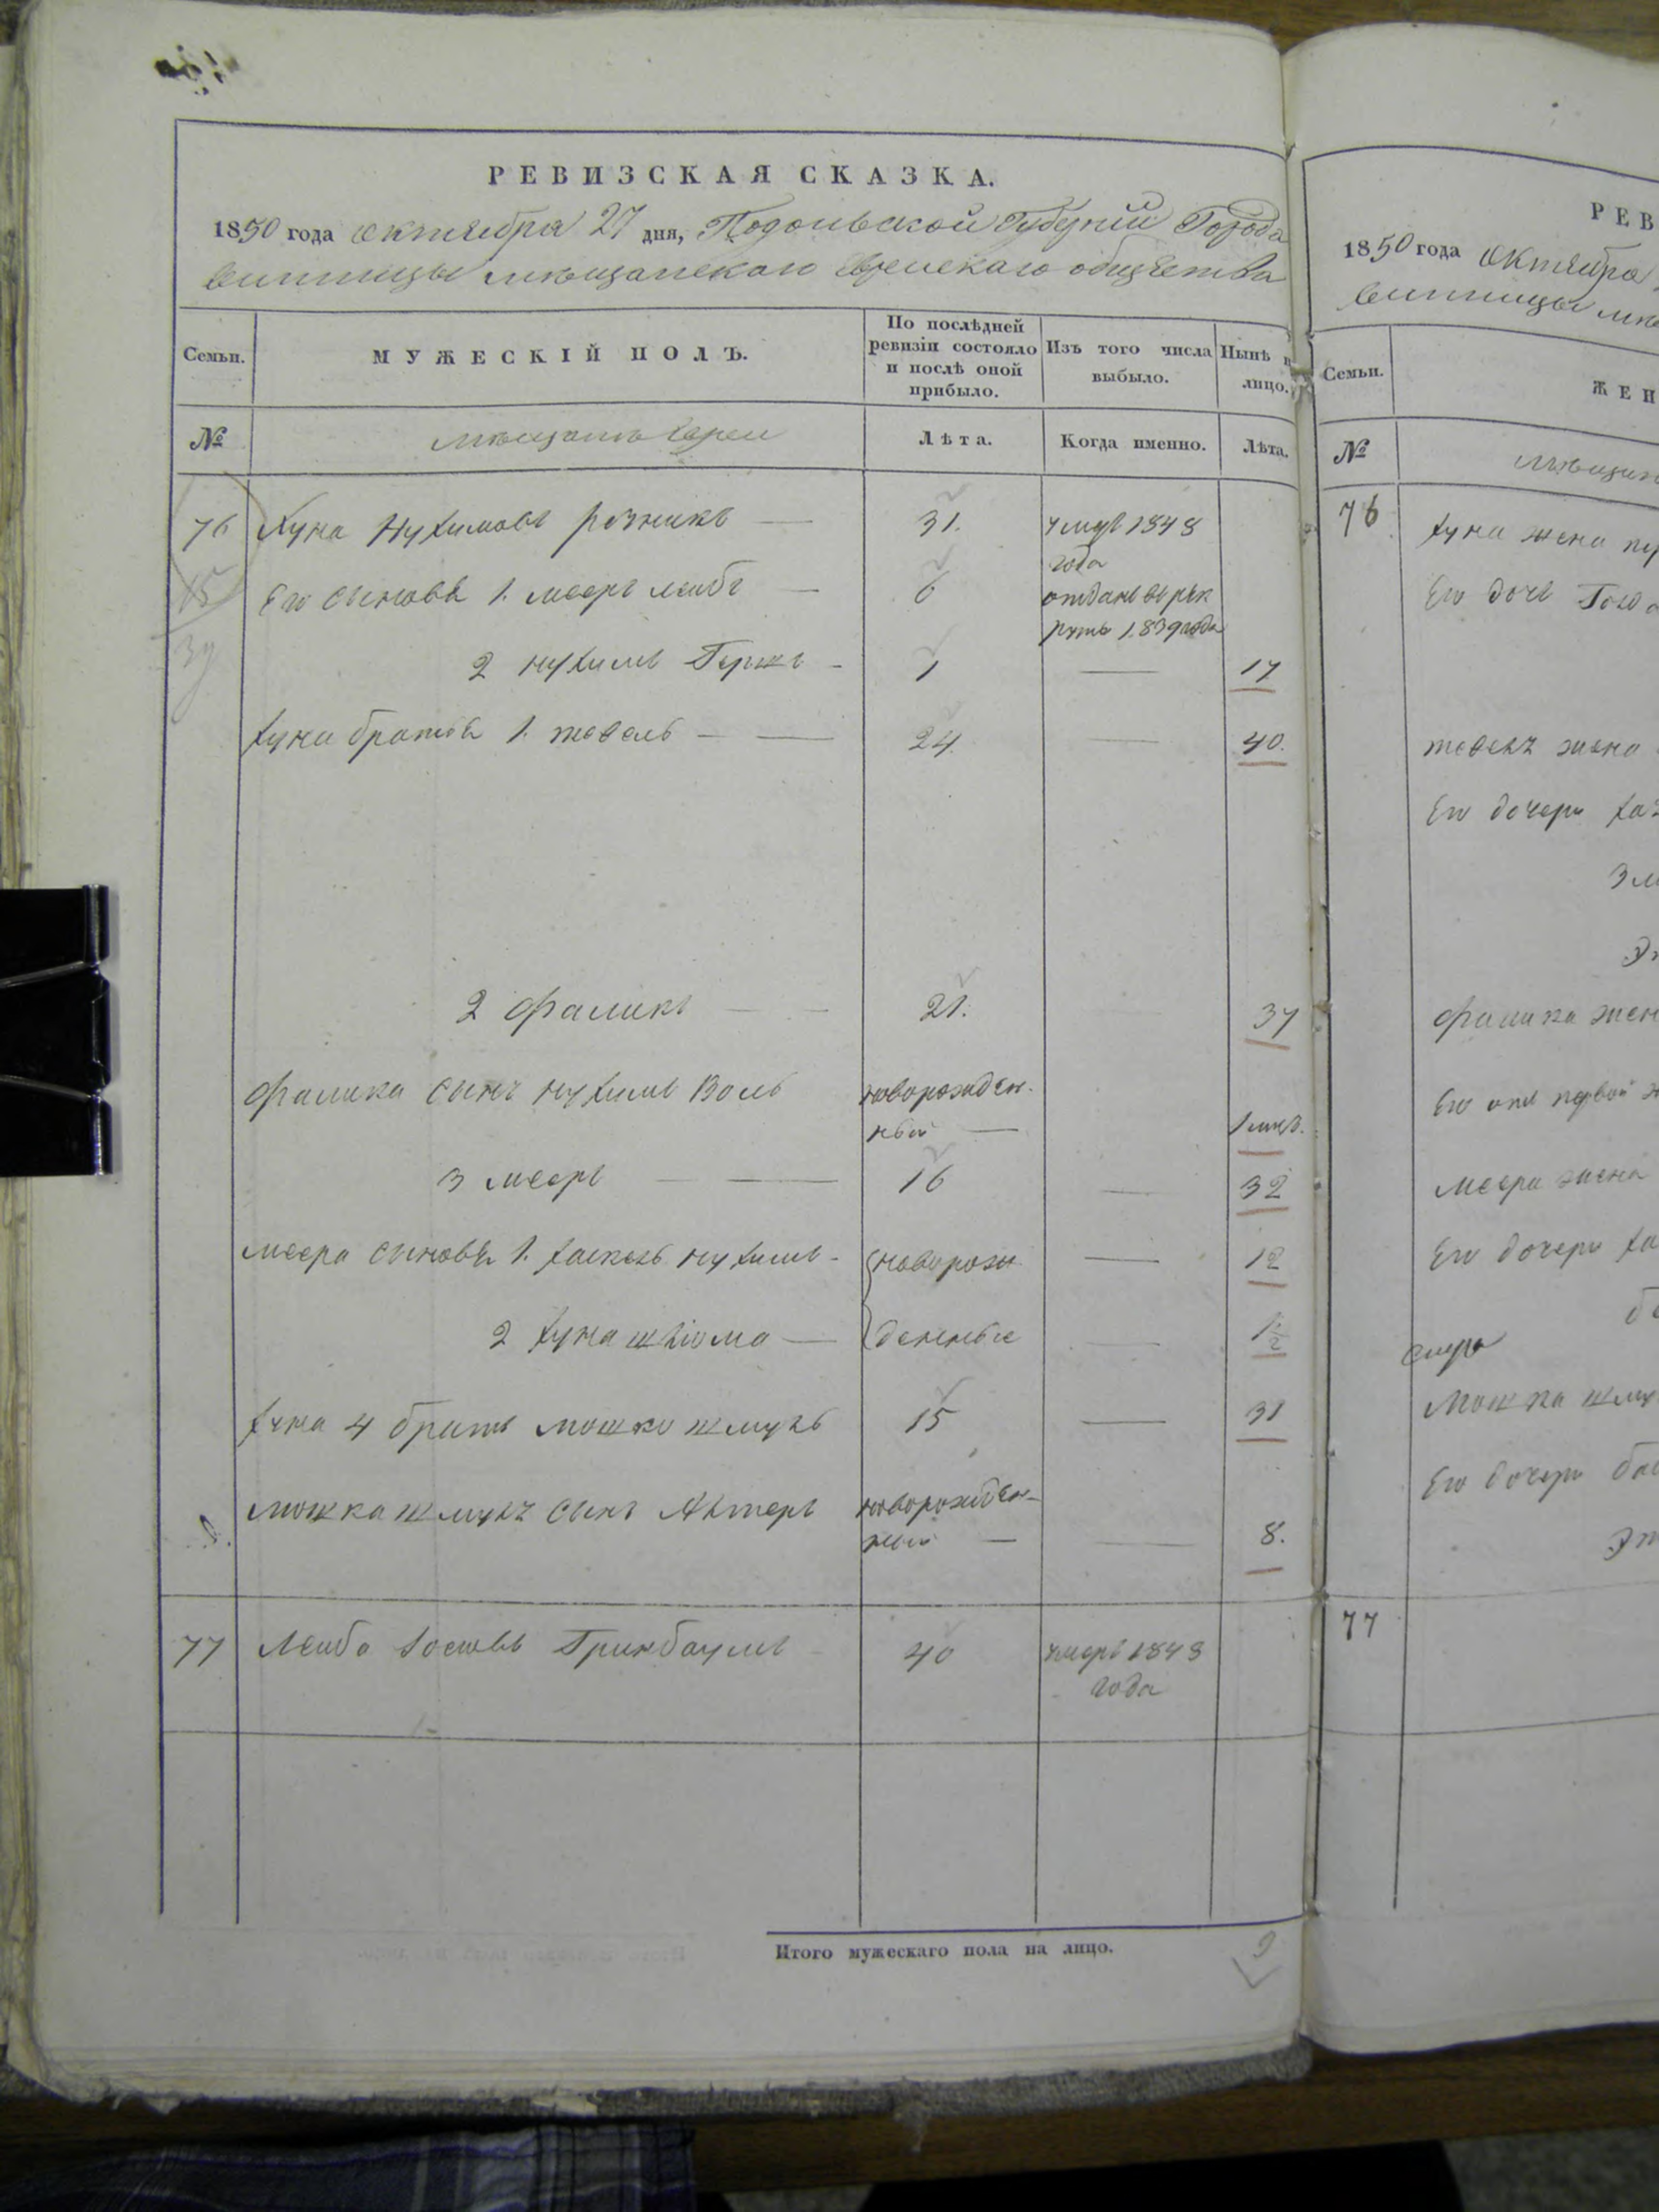 РЕВИЗСКАЯ СКАЗКА.
1850 года октября 27 дня, Подольской Губерніи Города
Винницы мѣщанскаго Еврейскаго общества
Семьи.
МУЖЕСКІЙ ПОЛЪ.
По послѣдней ревизіи состояло и послѣ оной прибыло.
Изъ того числа выбыло.
Нынѣ на лицо.
№
мѣщане Евреи
Лѣта.
Когда именно.
Лѣта.
76 Хуна Нухимовъ резникъ — 31. умеръ 1848
года
15 Его сыновья 1. мееръ лейбъ — 6 отданъ въ рек
руты 1839 года
39 2 нухимъ Гершъ - 1 — 17
хуна братья 1. тевель — — 24. — 40.
2 Фаликъ — — 21. 37
Фалика сынъ нухимъ Воль новорожден-
ный — 1 мѣс.
3 мееръ — — 16 — 32
меера сыновья 1. хаскель нухимъ - новорож — 12
2 хуна шліома — денные — 1/2
хуна 4 братъ мошко шмуль 15 — 31
мошка шмуль сынъ Альтеръ новорожден-
ный — — 8.
77 Лейба Іосевъ Гринбаумъ - 40 умеръ 1848
года
Итого мужескаго пола на лицо. 9
РЕВ
1850 года октября
Винницы мѣ
Семьи.
ЖЕН
№
мѣщан
76 хуна жена
Его дочь
тевель жена
Его дочери
Фалика жен
Его отъ первой
меера жена
Его дочери
мошка шму
Его дочери
77